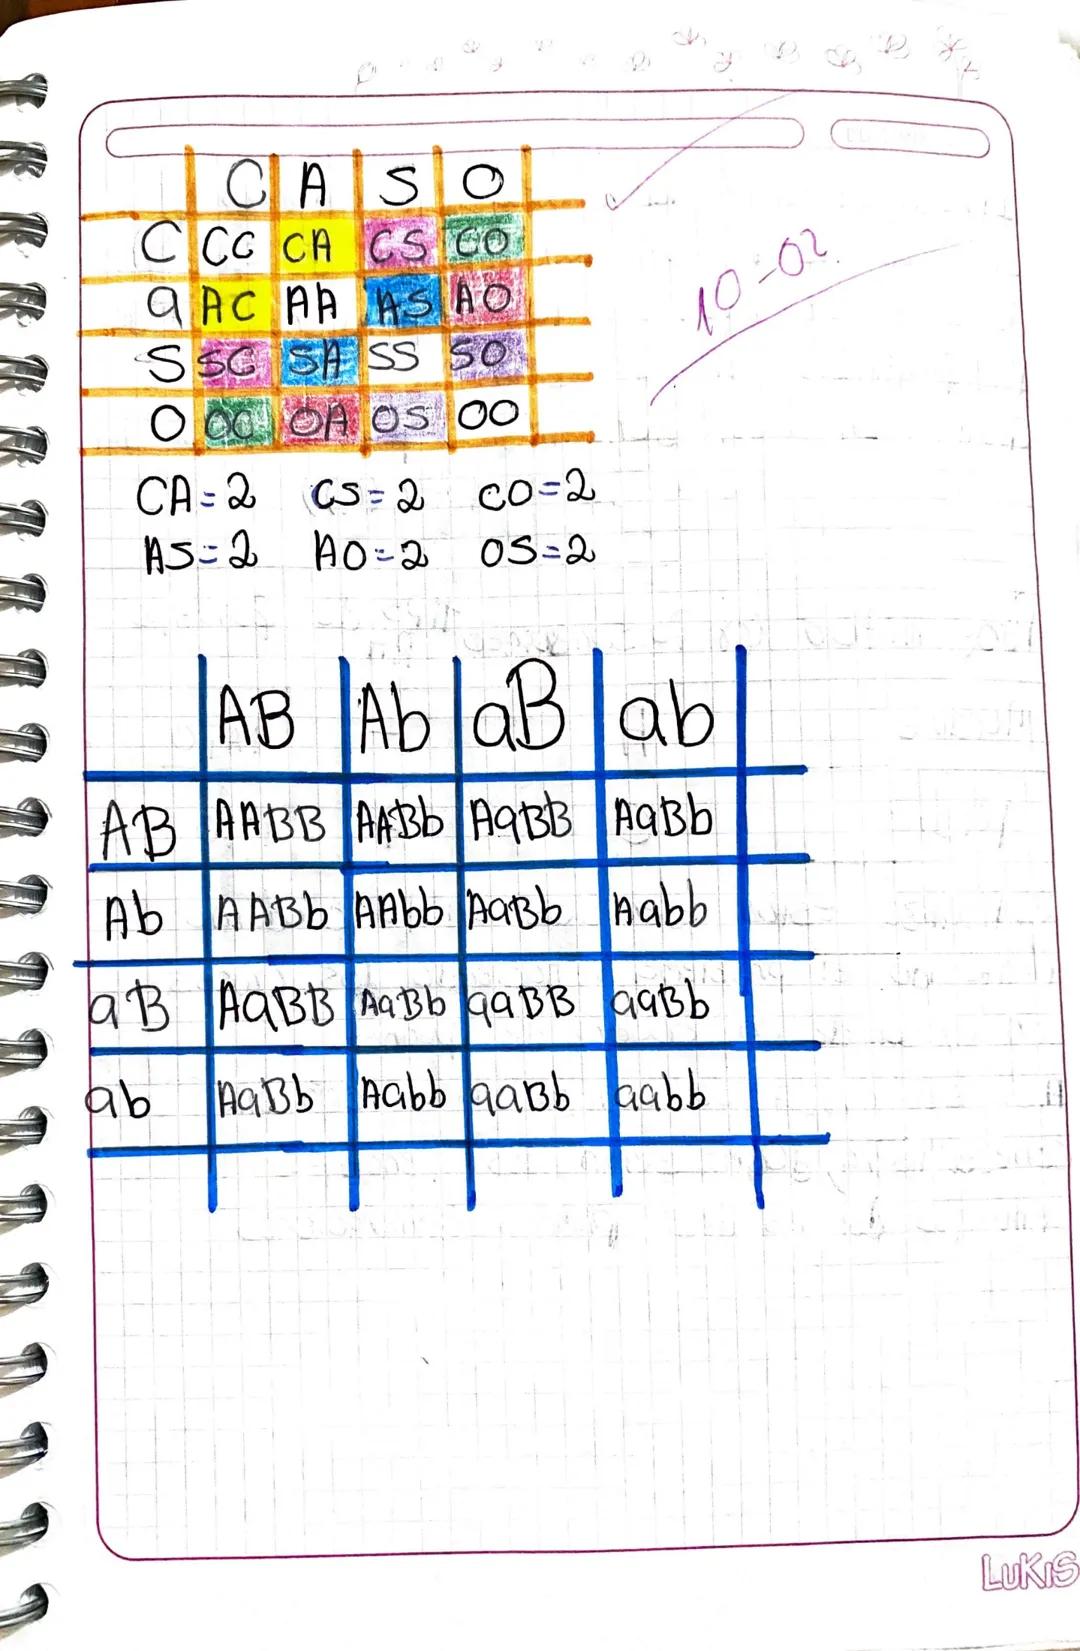 C A S O
C CC CA CS CO
a AC AA AS AO
S SC SA SS SO
O OC OA OS OO
10-02
CA=2 CS=2 CO=2
AS=2 AO=2 OS=2
AB Ab aB ab
AB AABB AABb AaBB AaBb
Ab AABb AAbb AaBb Aabb
aB AaBB AaBb aaBB aaBb
ab AaBb Aabb aaBb aabb
LUKIS